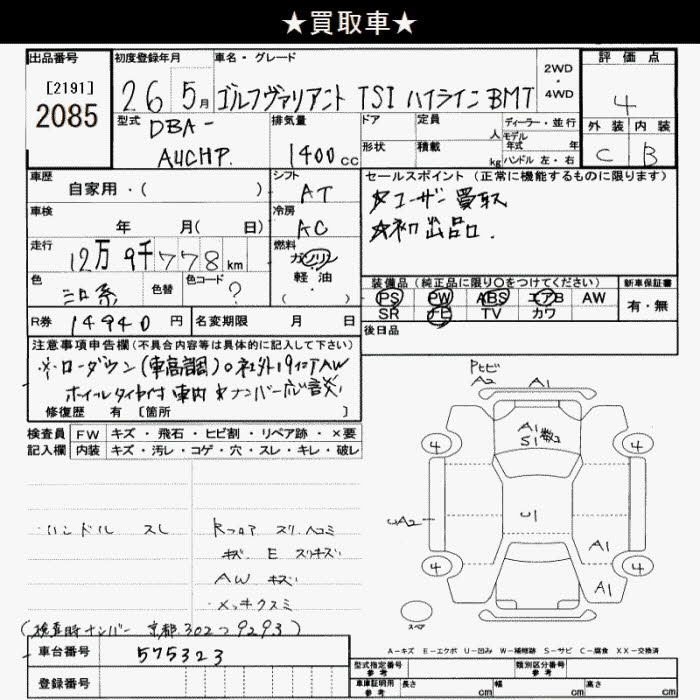 ★買取車★
出品番号
[2191]
2085
初度登録年月
26 5月
車名・グレード
ゴルフヴァリアント TSI ハイライン BMT
2WD
・
4WD
評価点
4
外装 内装
C B
型式
DBA-
AUCHP.
排気量
1400cc
ドア
形状
定員 人
積載 kg
ディーラー・並行
モデル年式 年
ハンドル 左・右
車歴
自家用・( )
シフト
AT
車検
年 月( 日)
冷房
AC
走行
12万9千778km
燃料
ガソリン
軽油・
( )
色
シロ系
色替
色コード
?
R券 14940円
名変期限 月 日
セールスポイント(正常に機能するものに限ります)
☆ユーザー買取
☆初出品.
装備品(純正品に限り○をつけてください)
PS PW ABS エアB AW
SR ナビ TV カワ
新車保証書
有・無
後日品
注意事項申告欄(不具合内容等は具体的に記入して下さい)
※ローダウン(車高調)○社外19インチAW
ホイールタイヤ付 車内 ☆ナンバー応談
修復歴 有 [箇所 ]
検査員 FW キズ・飛石・ヒビ割・リペア跡・×要
記入欄 内装 キズ・汚レ・コゲ・穴・スレ・キレ・破レ
ハンドル スレ
Rフロア スリ ヘコミ
キズ E スリキズ
AW キズ
メッキクスミ
(検査時ナンバー 京都302つ9293)
Pトビ
A2
A1
A1
S1数
4
4
UA2
U1
A1
4
4
A1
スペア
A-キズ E-エクボ U-凹み W-補修跡 S-サビ C-腐食 XX-交換済
車台番号 575323
登録番号
型式指定番号
参考
類別区分番号
参考
車庫証明用
参考
長さ cm 幅 cm 高さ cm